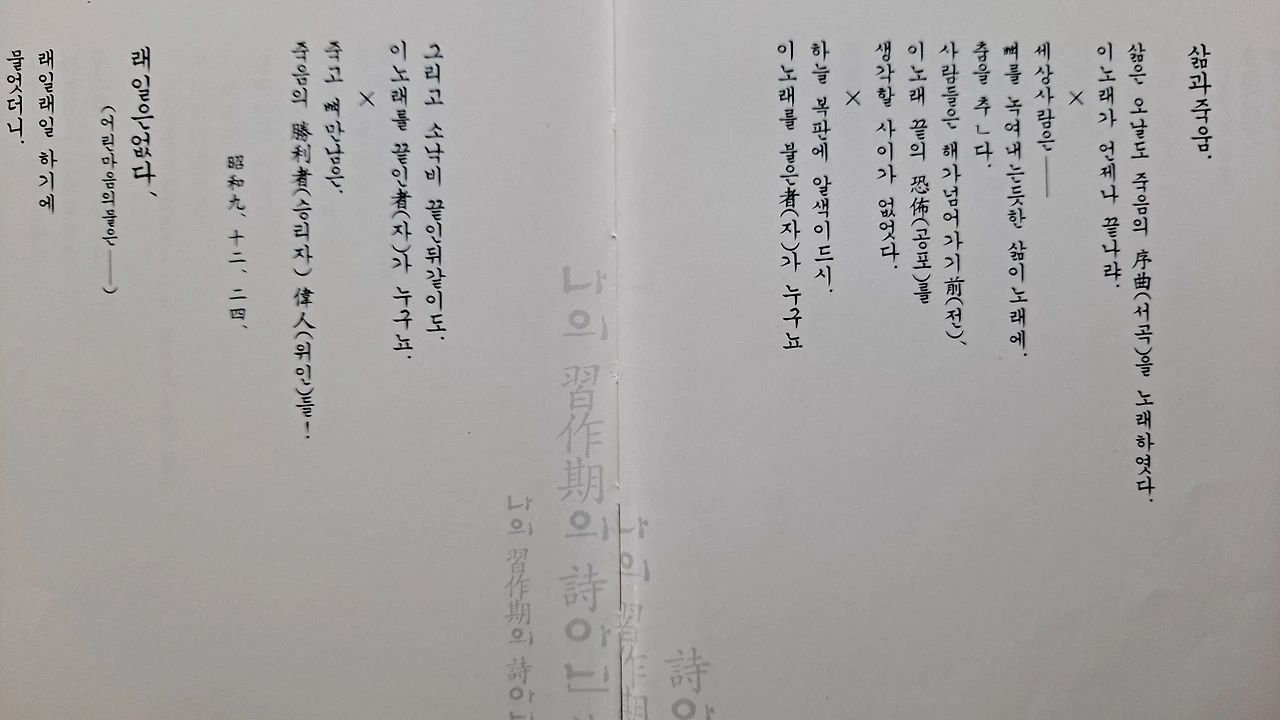 삶과죽움.
삶은 오날도 죽음의 序曲(서곡)을 노래하엿다.
이노래가 언제나 끝나랴.
×
세상사람은——
뼈를 녹여내는듯한 삶이노래에.
춤을 추ㄴ다.
사람들은 해가넘어가기前(전)、
이노래 끝의 恐怖(공포)를
생각할 사이가 없엇다.
×
하늘 복판에 알색이드시.
이노래를 불은者(자)가 누구뇨
詩아
나의 習作期
나의 習作期의 詩아닌
나의 習作期의 詩아닌
그리고 소낙비 끝인뒤같이도.
이노래를 끝인者(자)가 누구뇨.
×
죽고 뼈만남은.
죽음의 勝利者(승리자) 偉人(위인)들!
昭和九、十二、二四、
래일은없다、
(어린마음의물은——)
래일래일 하기에
물엇더니.